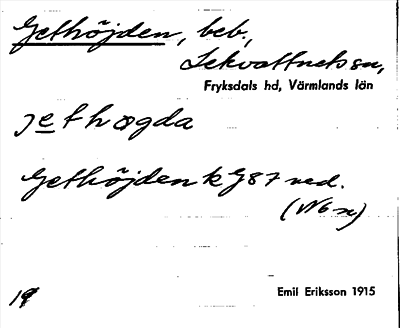 Gethöjden, beb,
Lekvattnets sn,
Fryksdals hd, Värmlands län
jethøgda
Gethöjden k G87 ned.
Emil Eriksson 1915
19